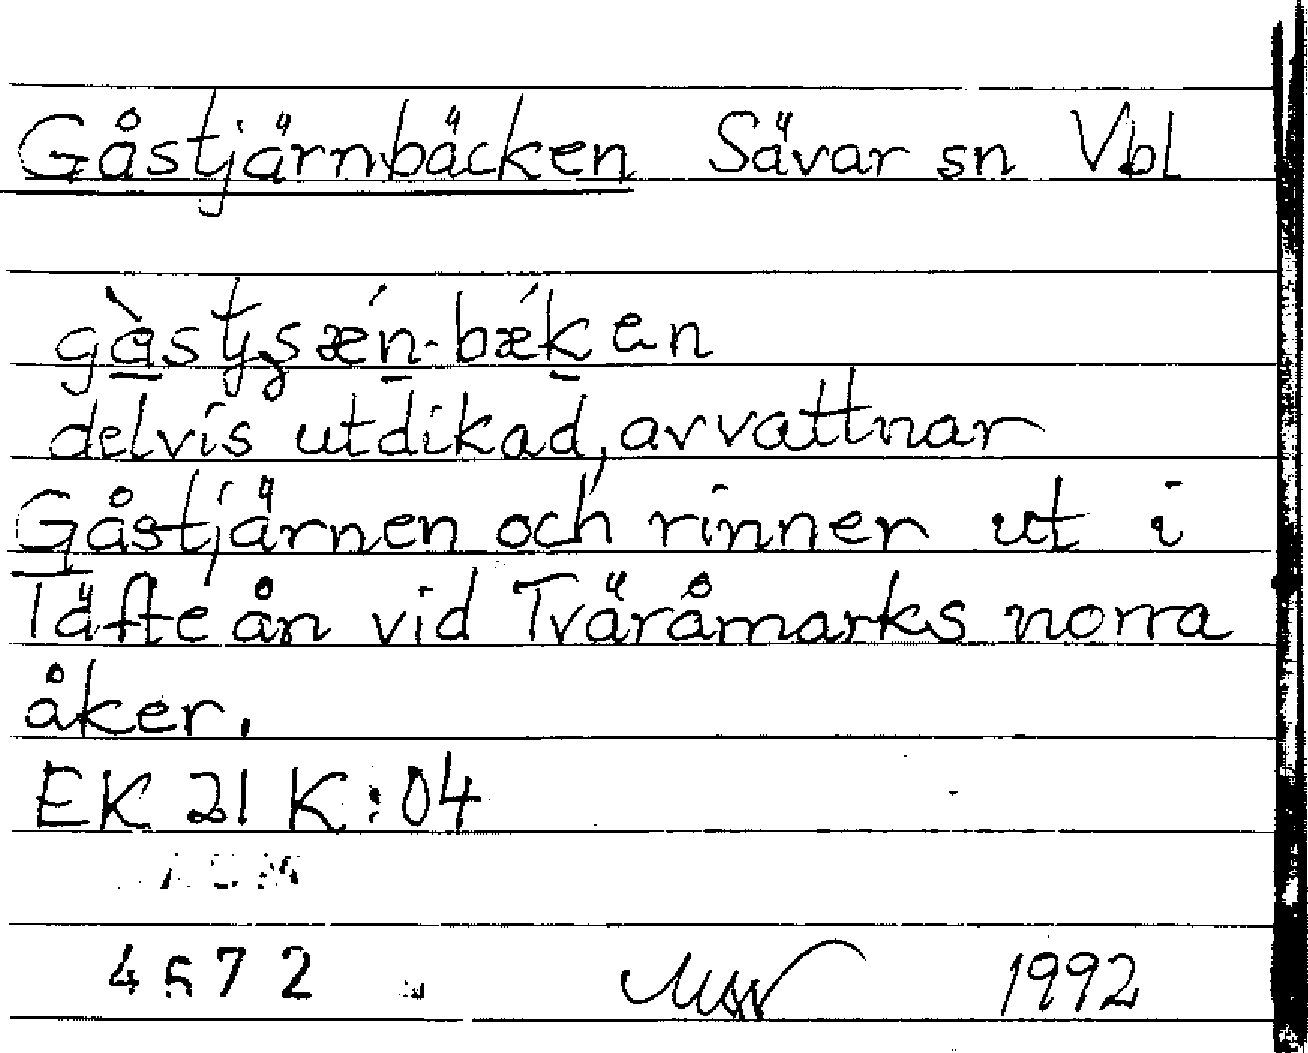 Gåstjärnbäcken Sävar sn Vbl
gàstjsǽn-bǽken
delvis utdikad, avvattnar
Gåstjärnen och rinner ut i
Täfteån vid Tväråmarks norra
åker.
EK 21 K:04
4572 1992